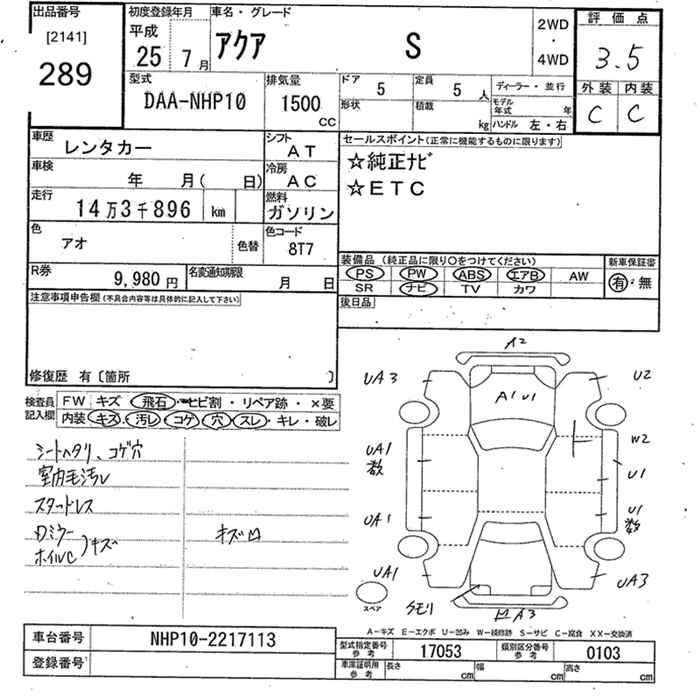 出品番号 初度登録年月 車名・グレード 2WD ・ 4WD 評価点
[2141] 289 平成 25 7月 アクア S 3.5
型式 排気量 ドア 5 定員 5人 ディーラー・並行 外装 内装
DAA-NHP10 1500 cc 形状 積載 kg モデル年式 年 ハンドル 左・右 C C
車歴 レンタカー シフト AT セールスポイント(正常に機能するものに限ります)
車検 年 月( 日) 冷房 AC ☆純正ナビ
走行 14万3千896 km 燃料 ガソリン ☆ETC
色 アオ 色替 色コード 8T7
装備品(純正品に限り〇をつけてください) 新車保証書
R券 9,980円 名変通知期限 月 日 PS PW ABS エアB AW 有・無
SR ナビ TV カワ
注意事項申告欄(不具合内容等は具体的に記入して下さい) 後日品
修復歴 有〔箇所 〕
検査員記入欄 FW キズ・飛石・ヒビ割・リペア跡・×要
内装・キズ・汚レ・コゲ・穴・スレ・キレ・破レ
シートヘタリ、コゲ穴
室内毛汚レ
スタッドレス
Dミラー
ホイルC )キズ
キズ凹
A2
UA3 A1 U1 U2
W2
UA1 数 U1
UA1 U1 数
UA1 UA3
スペア クモリ A3
A-キズ E-エクボ U-凹み W-補修跡 S-サビ C-腐食 XX-交換済
車台番号 NHP10-2217113 型式指定番号 参考 17053 類別区分番号 参考 0103
登録番号 車庫証明用 参考 長さ cm 幅 cm 高さ cm